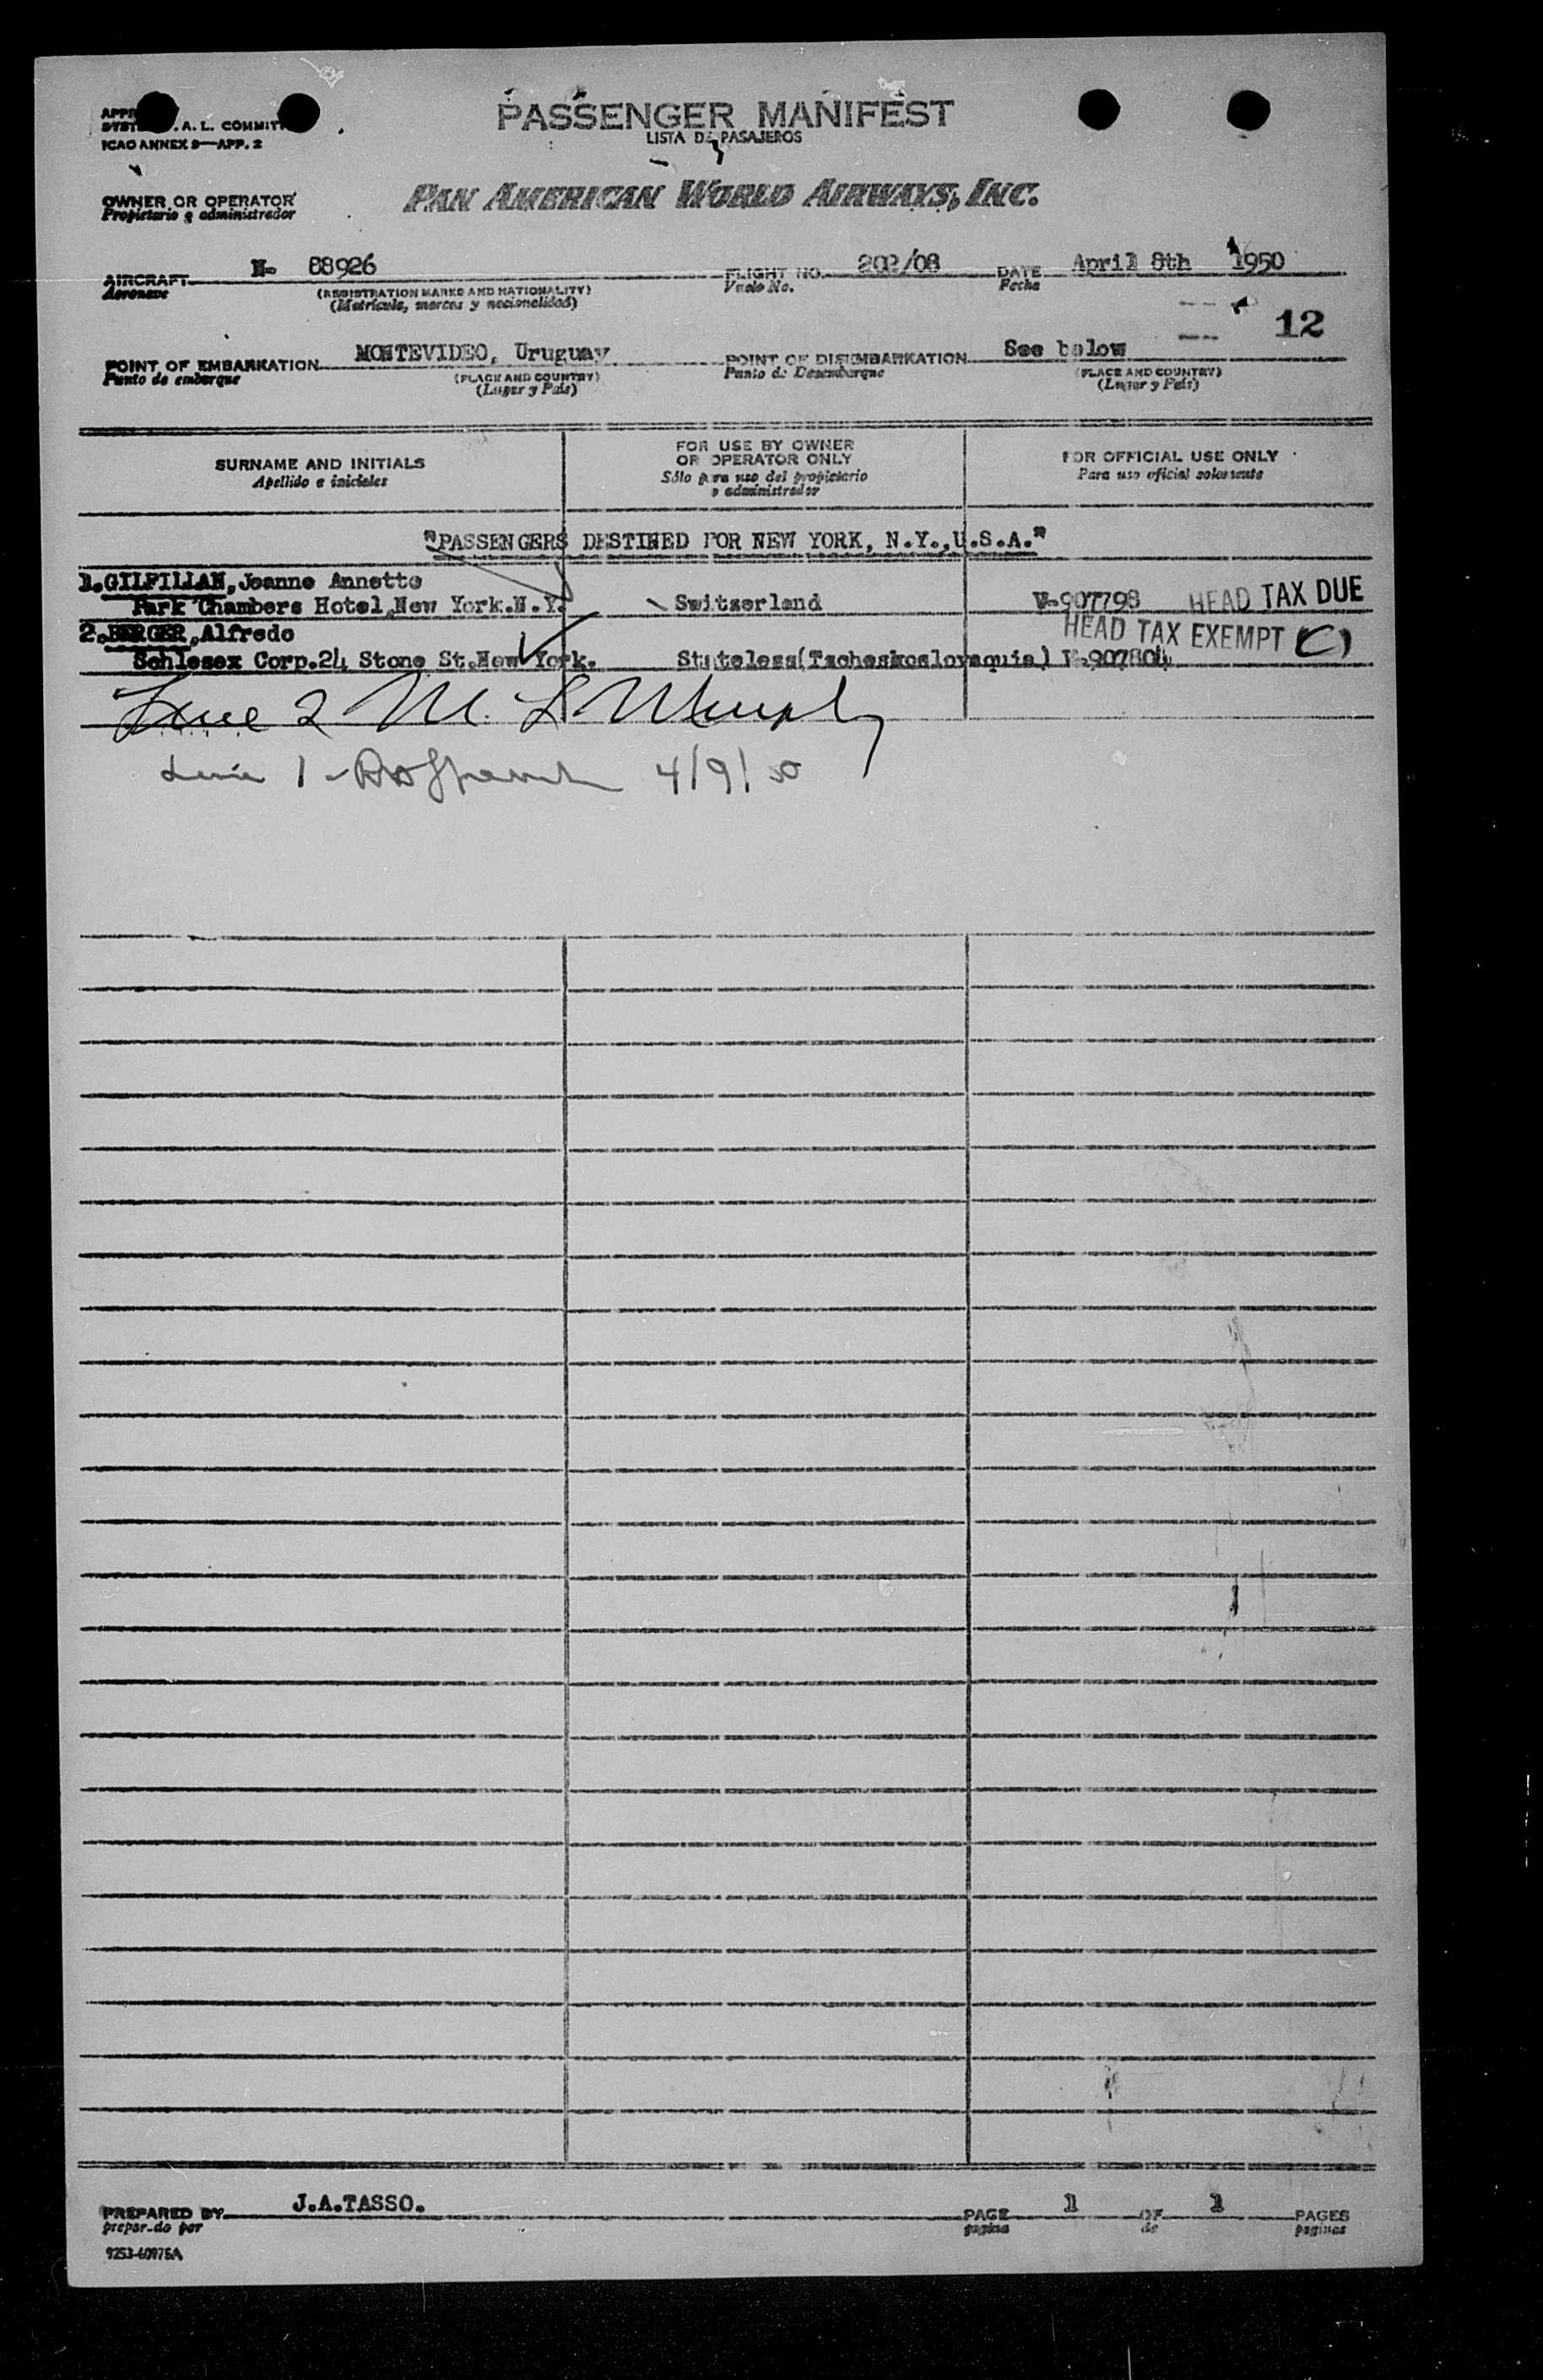 PASSENGER MANIFEST
LISTA DE PASAJEROS
A. L. COMMIT
ICAO ANNEX 9—APP. 2
OWNER OR OPERATOR
Propietario o administrador
PAN AMERICAN WORLD AIRWAYS, INC.
AIRCRAFT N- 88926 FLIGHT NO. 202/08 DATE April 8th 1950
Aeronave (REGISTRATION MARKS AND NATIONALITY) Vuelo No. Fecha
(Matrícula, marcas y nacionalidad)
12
POINT OF EMBARKATION MONTEVIDEO, Uruguay POINT OF DISEMBARKATION See below
Punto de embarque (PLACE AND COUNTRY) Punto de Desembarque (PLACE AND COUNTRY)
(Lugar y País) (Lugar y País)
SURNAME AND INITIALS FOR USE BY OWNER OR OPERATOR ONLY FOR OFFICIAL USE ONLY
Apellido e iniciales Sólo para uso del propietario o administrador Para uso oficial solamente
"PASSENGERS DESTINED FOR NEW YORK, N.Y.,U.S.A."
1.GILFILLAN,Jeanne Annette
Park Chambers Hotel,New York.N.Y. Switzerland V-907798 HEAD TAX DUE
2.BERGER,Alfredo HEAD TAX EXEMPT
Schlesex Corp.24 Stone St.New York. Stateless(Tscheskoslovaquia) V-907804
Line 2 M. L. Murphy
Line 1 - 4/9/50
PREPARED BY J.A.TASSO. PAGE 1 OF 1 PAGES
preparado por pagina de paginas
9253-60975A